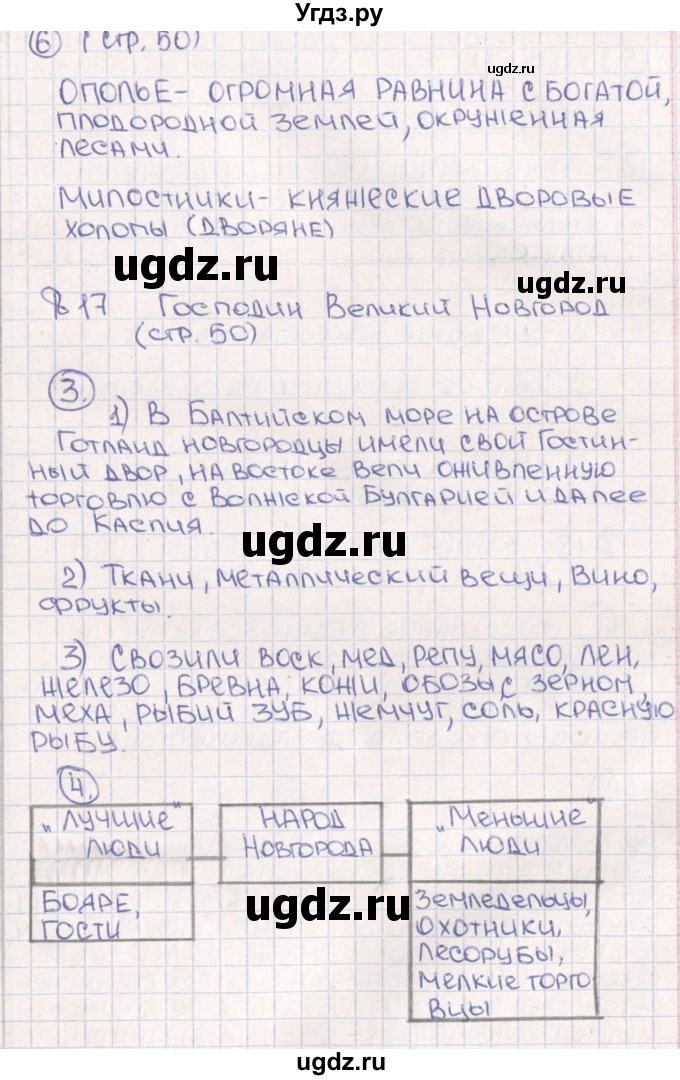 Угдз.ру
6 (стр. 50)
ugdz.ru
Ополье - огромная равнина с богатой,
плодородной землей, окруженная
лесами.
Милостники - княжеские дворовые
холопы (дворяне)
ugdz.ru
ugdz.ru
§ 17 Господин Великий Новгород
(стр. 50)
3.
1) В Балтийском море на острове
Готланд новгородцы имели свой Гостин-
ный двор, на востоке вели оживленную
торговлю с Волжской Булгарией и далее
до Каспия.
ugdz.ru
2) Ткани, металлический вещи, вино,
фрукты.
3) Свозили воск, мед, репу, мясо, лен,
железо, бревна, кожи, обозы с зерном,
меха, рыбий зуб, жемчуг, соль, красную
рыбу.
ugdz.ru
4.
"Лучшие"
люди
Народ
Новгорода
"Меньшие"
люди
Бояре,
гости
ugdz.ru
Земледельцы,
охотники,
лесорубы,
мелкие торго
вцы
ugdz.ru
ugdz.ru